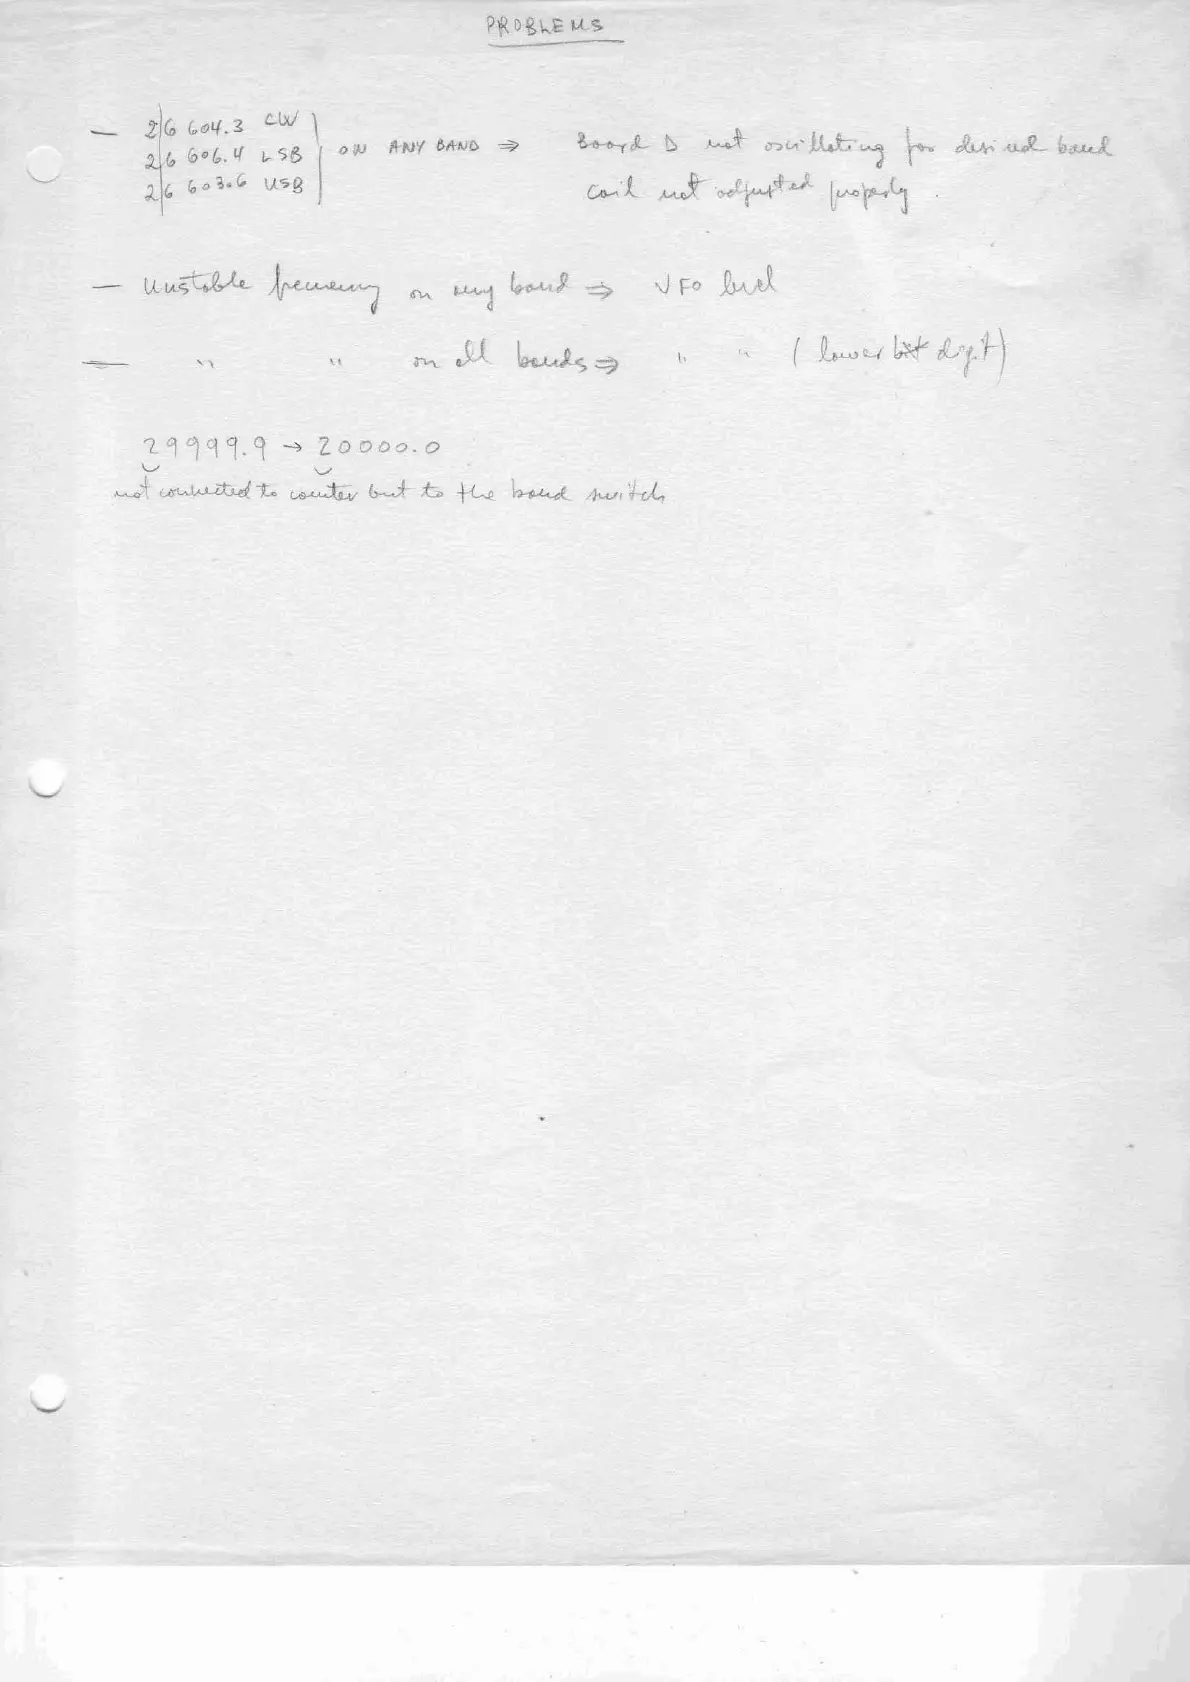 PROBLEMS
— 2|6 604.3 CW
2|6 606.4 LSB } ON ANY BAND ⇒ Board D not oscillating for desired band
2|6 603.6 USB coil not adjusted properly.
— Unstable frequency on any band ⇒ VFO level
— " " on all bands ⇒ " " (lower digit)
29999.9 → 20000.0
not connected to counter but to the band switch